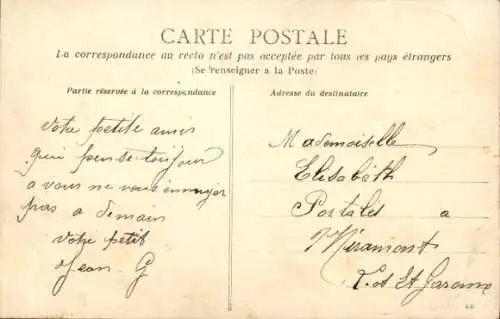 CARTE POSTALE
La correspondance au recto n'est pas acceptée par tous les pays étrangers
(Se renseigner à la Poste)
Partie réservée à la correspondance
Adresse du destinataire
Votre petite amis
qui pense toujour
a vous ne vous ennuyer
pas a demain
votre petit
Jean. G
Mademoiselle
Elisabéth
Portales a
Miramont
T. et Lt Garonne